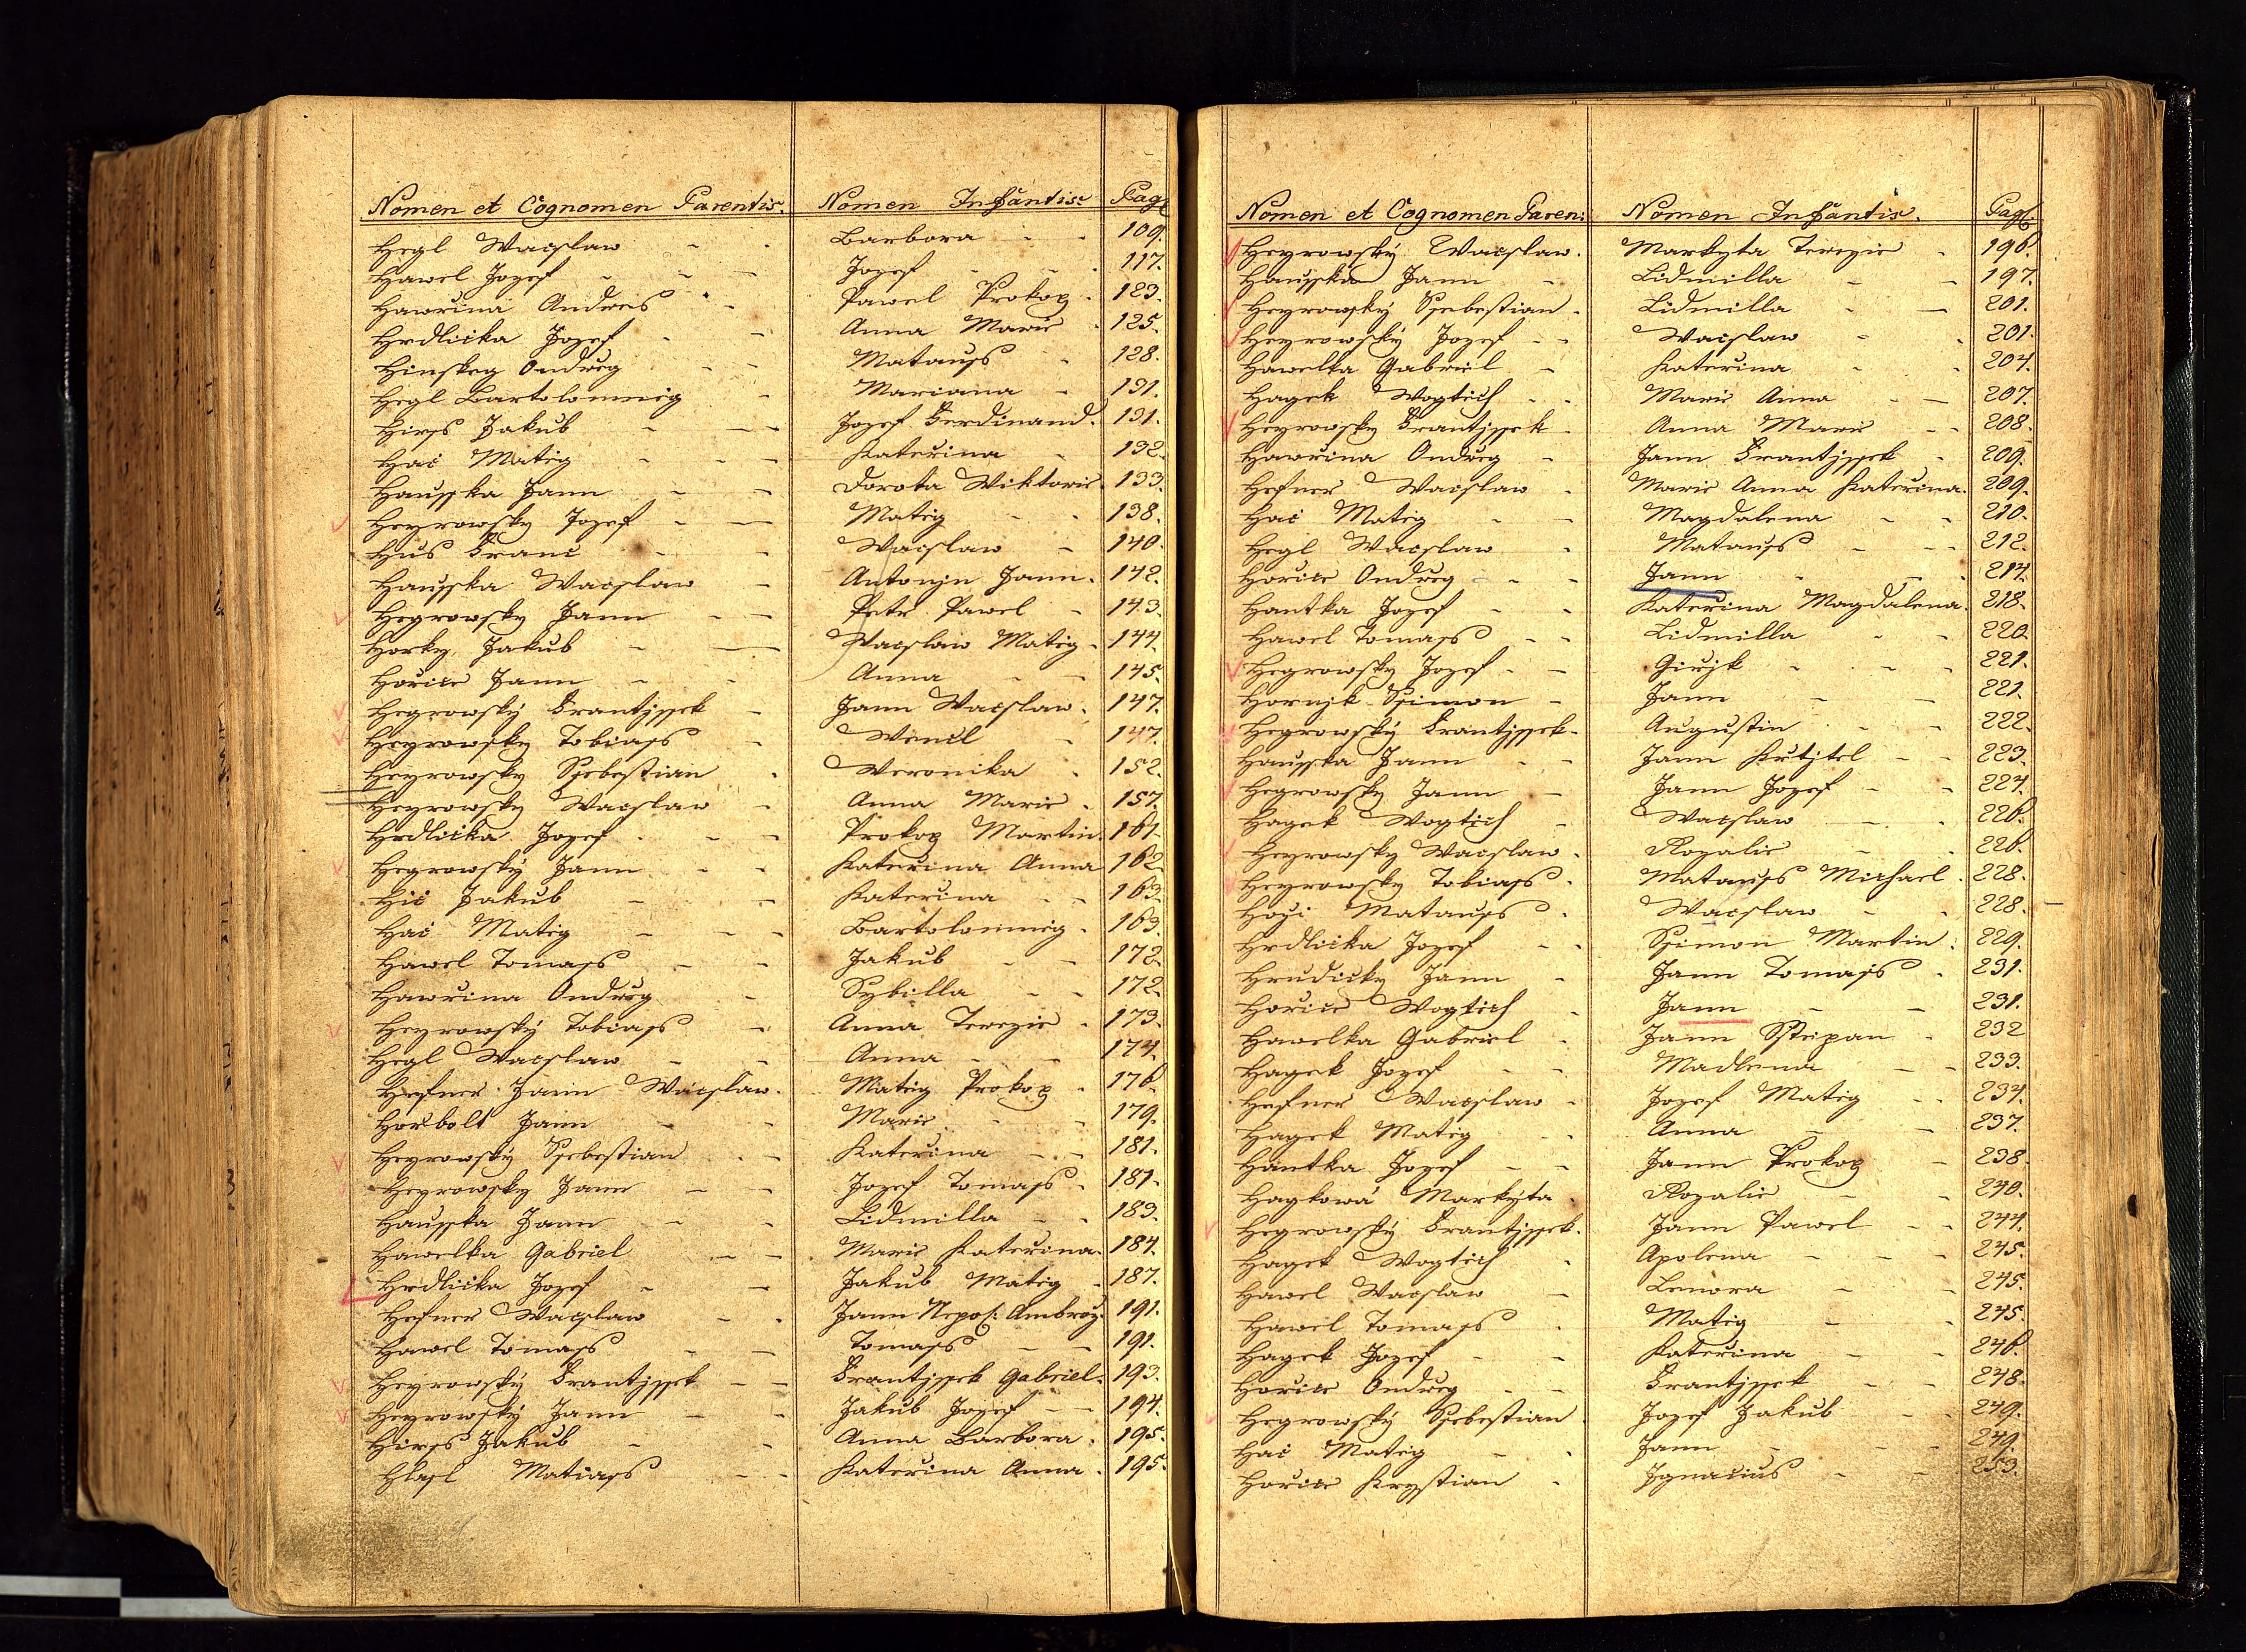 Nomen et Cognomen Parentis. Nomen Infantis: Pag:
Hegl Wacslaw Barbora 109.
Hawel Jozef Jozef 117.
Hawrina Andreis Pawel Prokop 123.
Hrdlicka Jozef Anna Marie 125.
Hinskey Ondreg Matauss 128.
Hegl Bartolomnieg Mariana 131.
Hirss Jakub Jozef Ferdinand. 131.
Hac Matieg Katerina 132.
Hausska Jann Dorota Wiktorie 133.
Heyrowsky Jozef Matieg 138.
Hus Franc Wacslaw 140.
Hausska Wacslaw Antonjn Jann. 142.
Hegrowsky Jann Petr Pawel 143.
Horky Jakub Wacslaw Matieg 144.
Horice Jann Anna 145.
Hegrowský Frantjssek Jann Wacslaw 147.
Heyrowsky Tobiass Wencl 147.
Heyrowsky Ssebestian Weronika 152.
Heyrowsky Wacslaw Anna Marie 157.
Hrdlicka Jozef Prokop Martin 161.
Hegrowský Jann Katerina Anna 162.
Hic Jakub Katerina 163.
Hac Matieg Bartolomnieg 163.
Hawel Tomass Jakub 172.
Hawrina Ondreg Sybilla 172.
Heyrowský Tobiass Anna Terezie 173.
Hegl Wacslaw Anna 174.
Hefner Jann Wacslaw. Matieg Prokop 176.
Horbolt Jann Marie 179.
Heyrowský Ssebestian Katerina 181.
Heyrowsky Jann Jozef Tomass 181.
Hausska Jann Lidmilla 183.
Hawelka Gabriel Marie Katerina. 184.
Hrdlicka Jozef Jakub Matieg 187.
Hefner Wacslaw Jann Nepo: Ambroz. 191.
Hawel Tomass Tomass 191.
Heyrowský Frantjssek Frantjssek Gabriel. 193.
Heyrowský Jann Jakub Jozef 194.
Hirss Jakub Anna Barbora 195.
Hlasl Matiass Katerina Anna 195.
Nomen et Cognomen Paren: Nomen Infantis. Pag:
Heyrowský Wacslaw. Markyta Terezie 196.
Hausska Jann Lidmilla 197.
Heyrowský Ssebestian Lidmilla 201.
Heyrowský Jozef Wacslaw 201.
Hawelka Gabriel Katerina 204.
Hagek Wogtich Marie Anna 207.
Heyrowsky Frantjssek Anna Marie 208.
Hawrina Ondreg Jann Frantjssek 209.
Hefner Wacslaw Marie Anna Katerina. 209.
Hac Matieg Magdalena 210.
Hegl Wacslaw Matauss 212.
Horice Ondreg Jann 214.
Hantka Jozef Katerina Magdalena. 218.
Hawel Tomass Lidmilla 220.
Hegrowsky Jozef Girjk 221.
Hornjk Ssimon Jann 221.
Hegrowský Frantjssek Augustin 222.
Hausska Jann Jann Krtjtel 223.
Hegrowsky Jann Jann Jozef 224.
Hagek Wogtich Wacslaw 226.
Heyrowsky Wacslaw Rozalie 226.
Heyrowsky Tobiass Matauss Michael 228.
Matauss Wacslaw 228.
Hrdlicka Jozef Ssimon Martin 229.
Hrudicky Jann Jann Tomass 231.
Horice Wogtich Jann 231.
Hawelka Gabriel Jann Sstiepan 232
Hagek Jozef Madlena 233.
Hefner Wacslaw Jozef Matieg 234.
Hagek Matieg Anna 237.
Hantka Jozef Jann Prokop 238.
Hagkowá Markyta Rozalie 240.
Hegrowský Frantjssek. Jann Pawel 244.
Hagek Wogtich Apolena 245.
Hawel Wacslaw Lenora 245.
Hawel Tomass Matieg 245.
Hagek Jozef Katerina 246.
Horice Ondreg Frantjssek 248.
Hegrowský Ssebestian Jozef Jakub 249.
Hac Matieg Jann 249.
Horice Krystian Jgnacius 253.